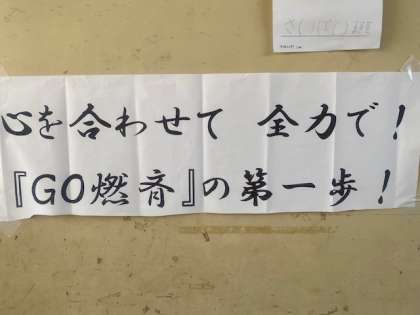 心を合わせて 全力で!
『GO燃斉』の第一歩!